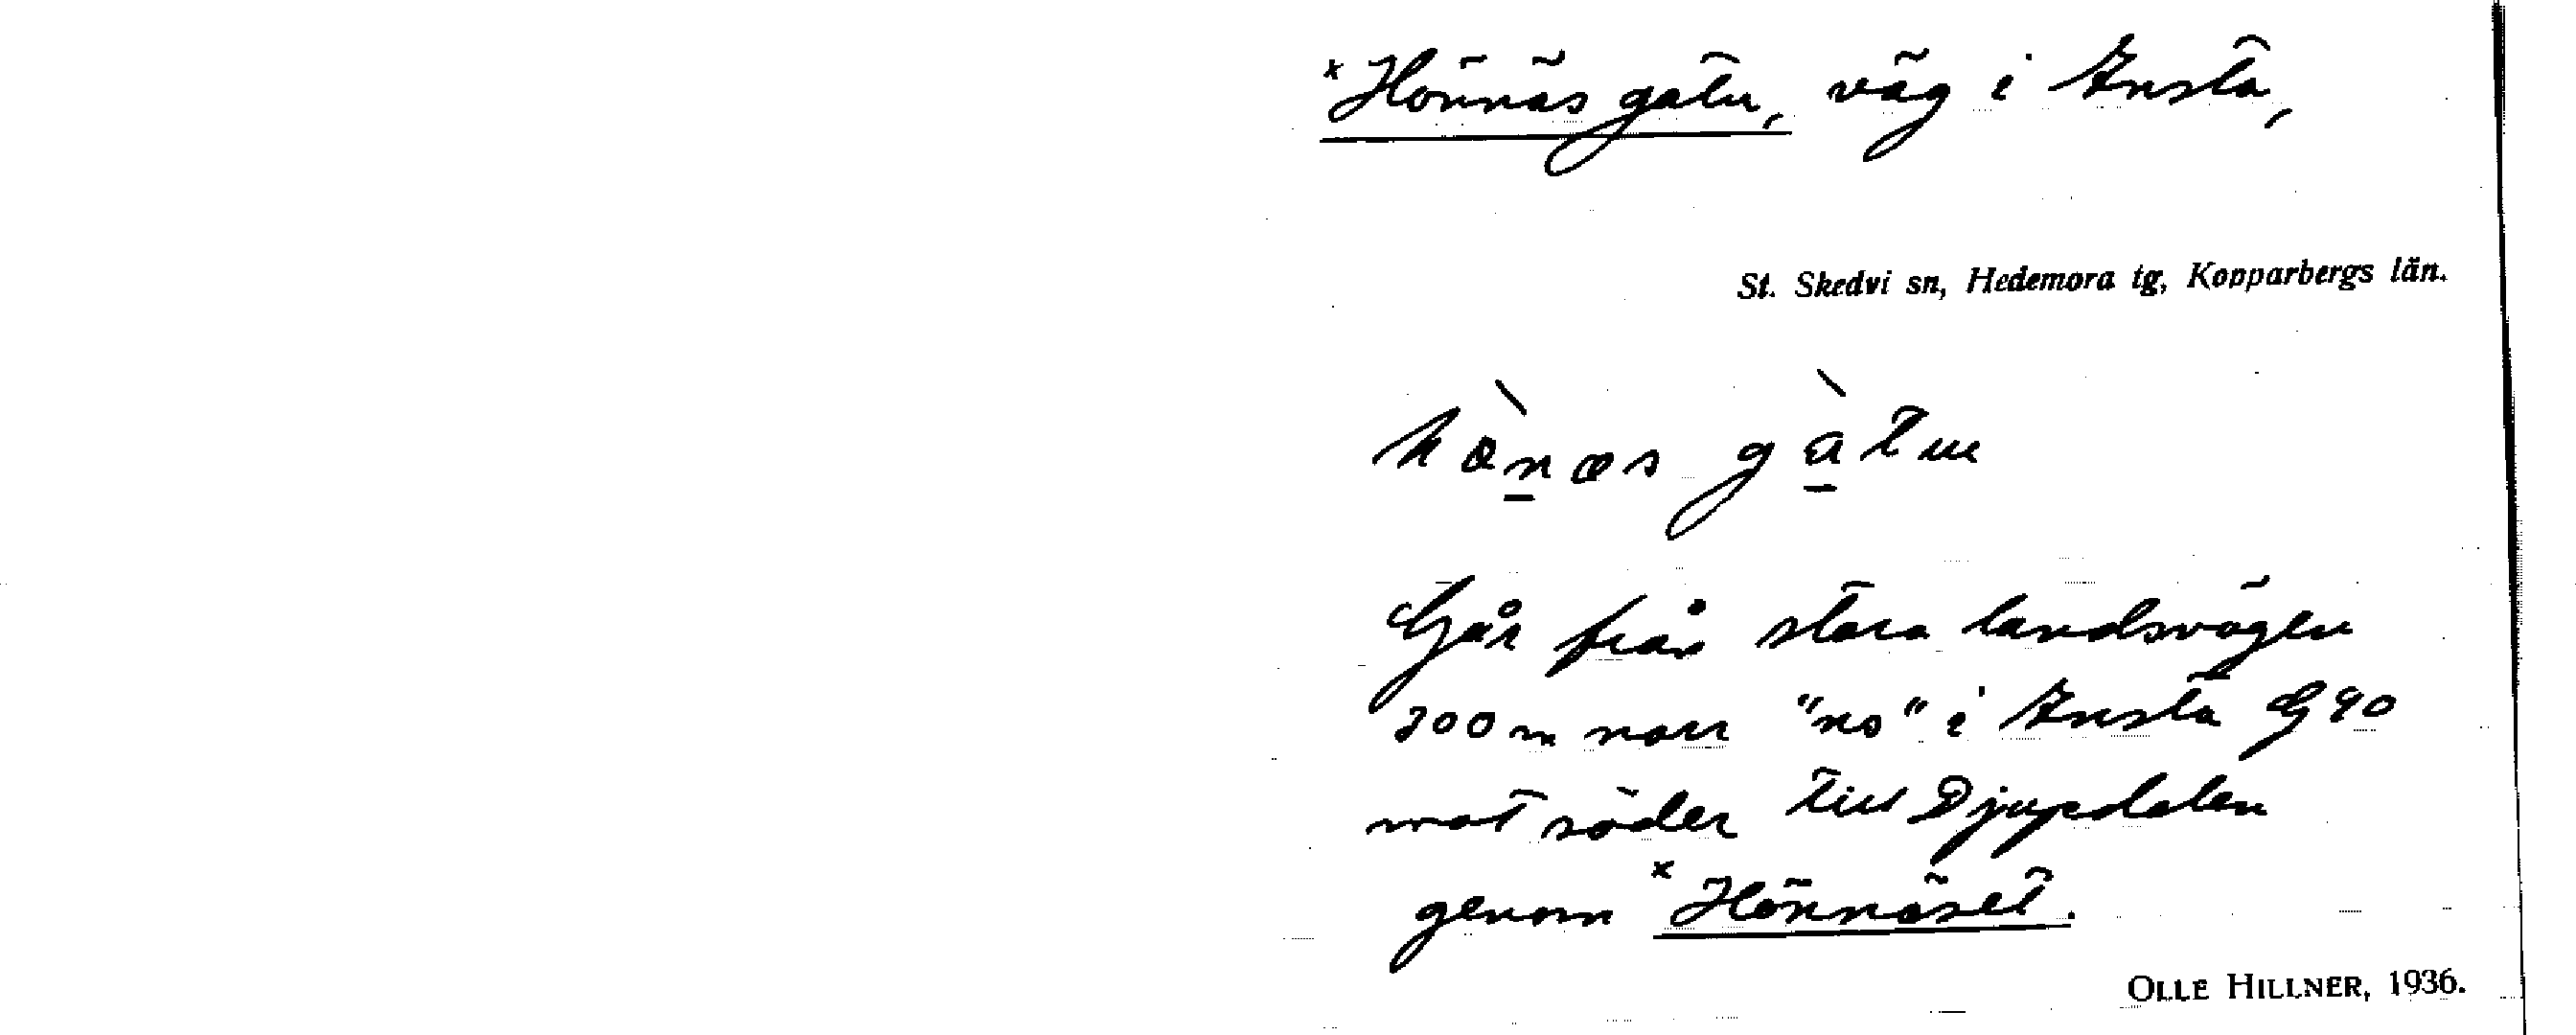 *Hönnäs gatu, väg i Ansta,
St. Skedvi sn, Hedemora tg, Kopparbergs län.
Går från stora landsvägen
300 m norr "ns" i Ansta G 90
mot söder till Djupdalen
genom *Hönnäset.
OLLE HILLNER, 1936.